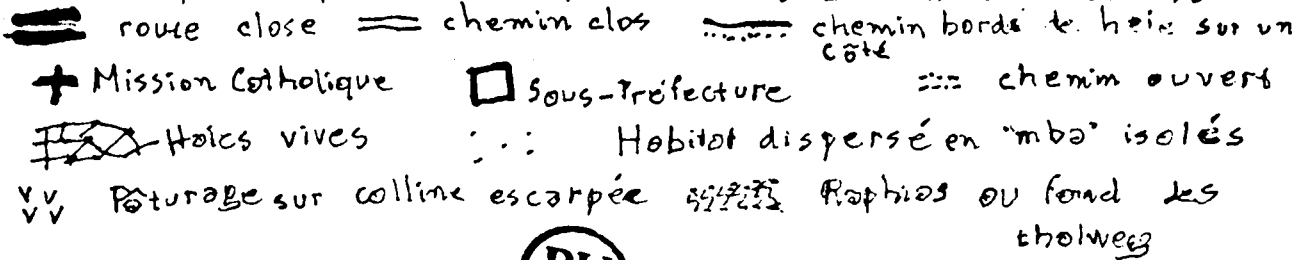 route close chemin clos chemin bordé de haie sur un
côté
Mission Catholique Sous-Préfecture chemin ouvert
Haies vives Habitat dispersé en "mba" isolés
Pâturage sur colline escarpée Raphias au fond des
thalwegs